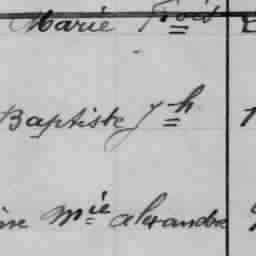 Marie Frois
Baptiste Jh
ine Mie alexandre